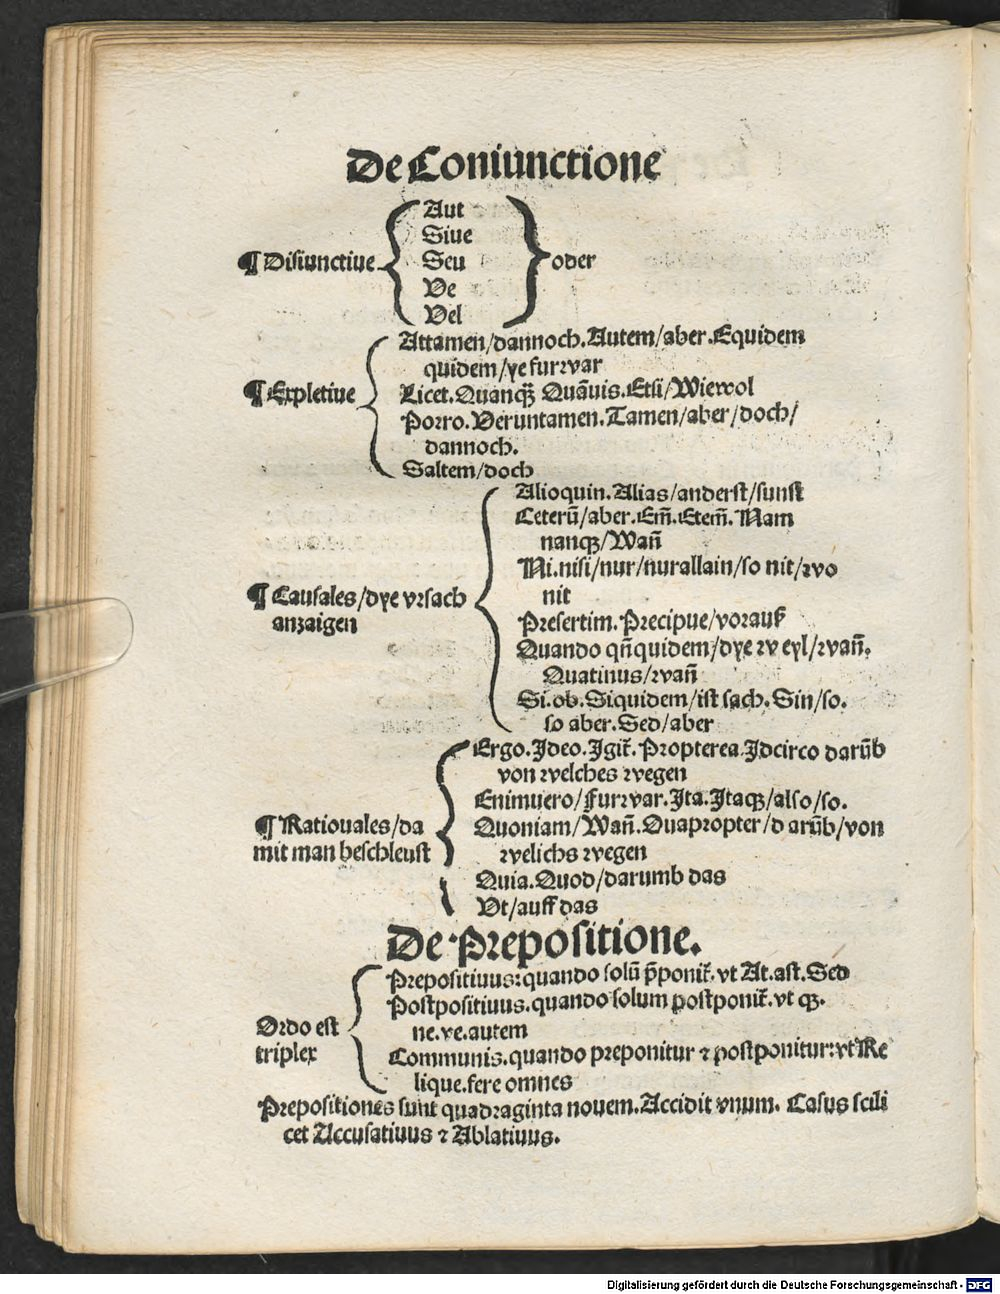 De Coniunctione
Aut
Siue
¶ Disiunctiue Seu oder
Ve
Vel
Attamen/dannoch. Autem/aber. Equidem
quidem/ye furwar
¶ Expletiue Licet. Quanqꝫ Quāuis. Etsi/Wiewol
Porro. Veruntamen. Tamen/aber/doch/
dannoch.
Saltem/doch
Alioquin. Alias/anderst/sunst
Ceterū/aber. Em̄. Etem̄. Nam
nanqꝫ/Wan̄
Ni. nisi/nur/nurallain/so nit/wo
nit
¶ Causales/dye vrsach
anzaigen
Presertim. Precipue/vorauß
Quando qn̄quidem/dye w eyl/wan̄.
Quatinus/wan̄
Si. ob. Siquidem/ist sach. Sin/so.
so aber. Sed/aber
Ergo. Ideo. Igit̄. Propterea. Idcirco darūb
von welches wegen
Enimuero/furwar. Ita. Itaqꝫ/also/so.
¶ Rationales/da
mit man beschleust
Quoniam/Wan̄. Quapropter/d arūb/von
welichs wegen
Quia. Quod/darumb das
Vt/auff das
De Prepositione.
Prepositiuus: quando solū p̄ponit̄. vt At. ast. Sed
Postpositiuus. quando solum postponit̄. vt qꝫ.
ne. ve. autem
Ordo est
triplex
Communis. quando preponitur ⁊ postponitur: vt Re
lique. fere omnes
Prepositiones sunt quadraginta nouem. Accidit vnum. Casus scili
cet Accusatiuus ⁊ Ablatiuus.
Digitalisierung gefördert durch die Deutsche Forschungsgemeinschaft - DFG